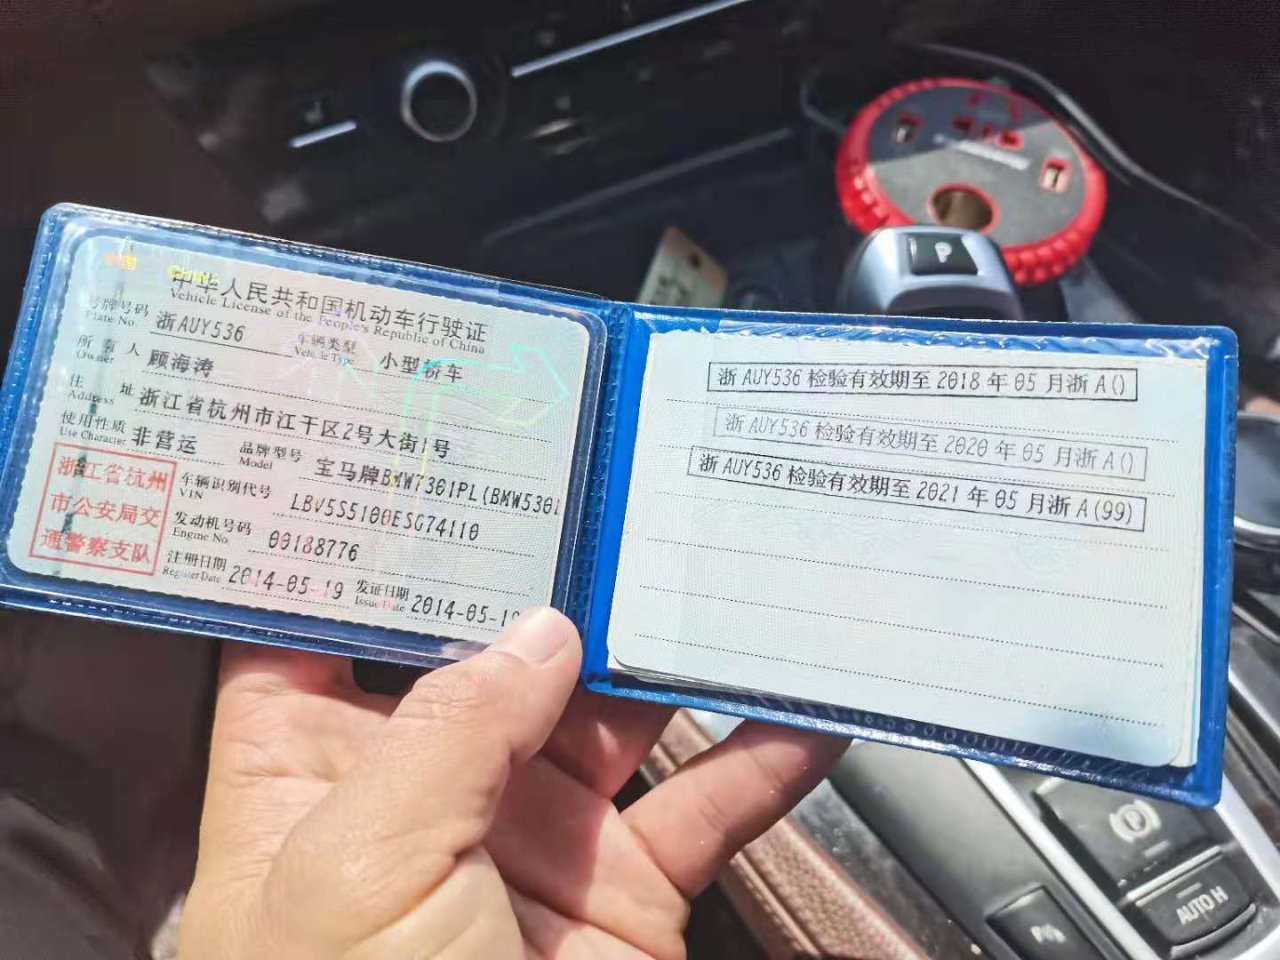 CHINA
中华人民共和国机动车行驶证
Vehicle License of the People's Republic of China
号牌号码 浙AUY536 车辆类型 小型轿车
Plate No. Vehicle Type
所有人 顾海涛
Owner
住址 浙江省杭州市江干区2号大街1号
Address
使用性质 非营运 品牌型号 宝马牌BMW7301PL(BMW530
Use Character Model
浙江省杭州
市公安局交
通警察支队
车辆识别代号 LBV5S5100ESG74110
VIN
发动机号码 00188776
Engine No.
注册日期 2014-05-19 发证日期 2014-05-19
Register Date Issue Date
浙AUY536检验有效期至2018年05月浙A()
浙AUY536检验有效期至2020年05月浙A()
浙AUY536检验有效期至2021年05月浙A(99)
P
P
AUTO H